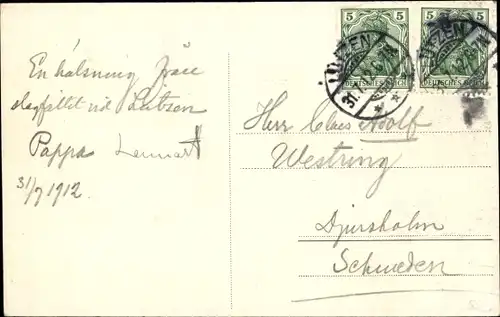 5 5
DEUTSCHES REICH DEUTSCHES REICH
LÜTZEN
31.7.
En hälsning från
slagfältet vid Lützen
Pappa Lennart
31/7 1912
Herr Claes Adolf
Westring
Djursholm
Schweden